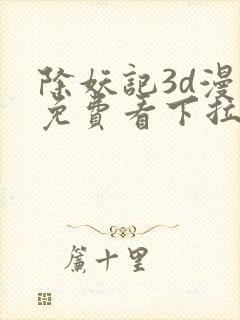 除妖记3d漫
免费看下拉
簾十里